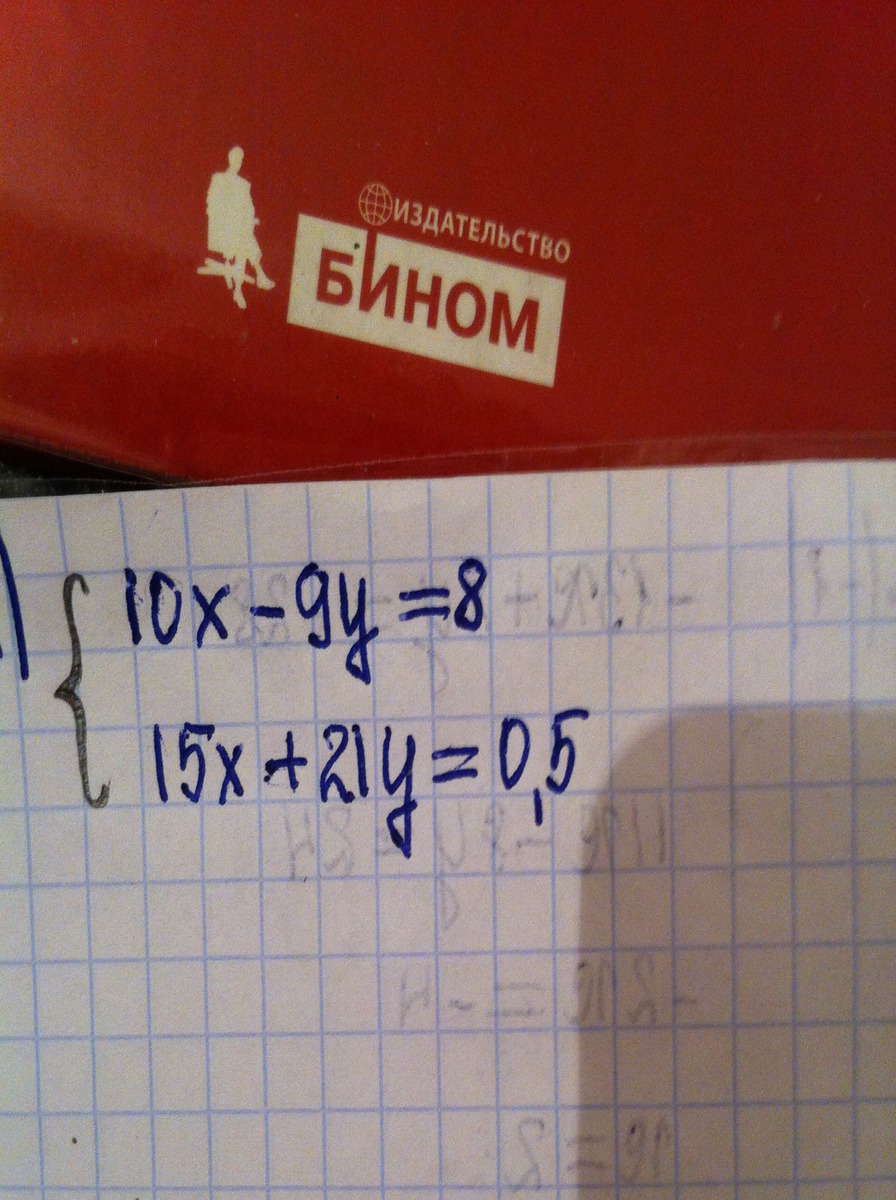 ИЗДАТЕЛЬСТВО
БИНОМ
10x - 9y = 8
15x + 21y = 0,5